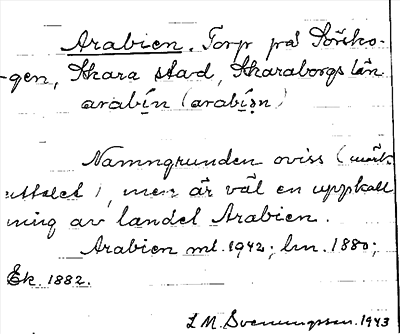 Arabien. Torp på Sörsko-
-gen, Skara stad, Skaraborgs län
arabín (arabíən)
Namngrunden oviss (märk
uttalet), men är väl en uppkall
ning av landet Arabien.
Arabien ml. 1942; lm. 1880;
Ek. 1882.
L M. Svenungsson. 1943